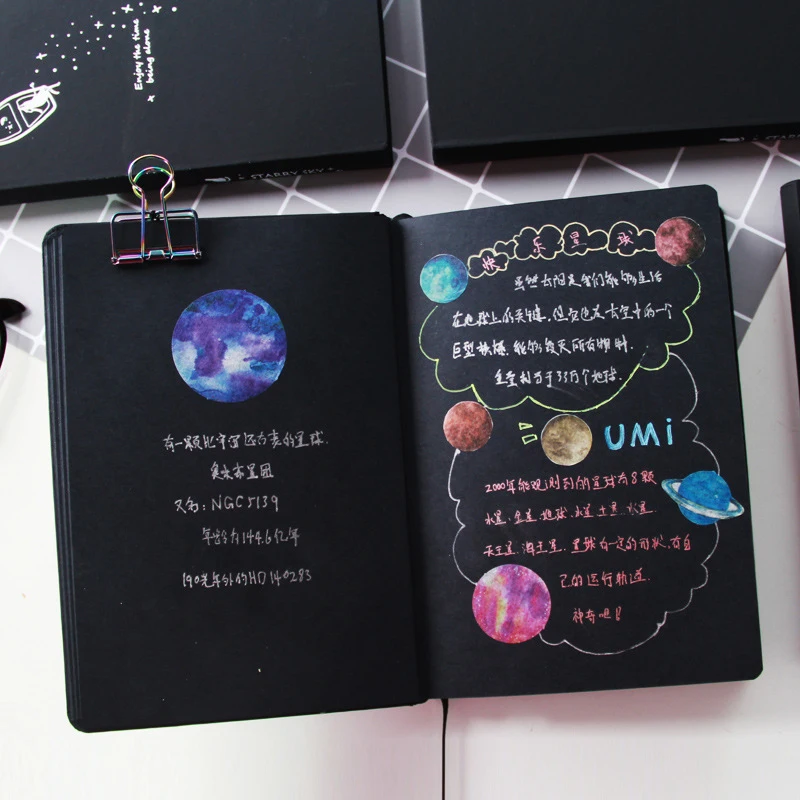 Enjoy the time
being alone
STARRY SKY
有一颗比宇宙还古老的星球.
奥米茄星团
又名: NGC5139
年龄为144.6亿年
190光年外的HD 140283
快乐星球
虽然太阳是我们能够生活
在地球上的关键, 但它也是太空中的一个
巨型核爆, 能够毁灭所有物质.
重量相当于33万个地球.
UMi
2000年能观测到的星球有8颗
水星 金星 地球 火星 土星 木星
天王星 海王星 星球有一定的形状, 有自
己的运行轨道.
神奇吧!